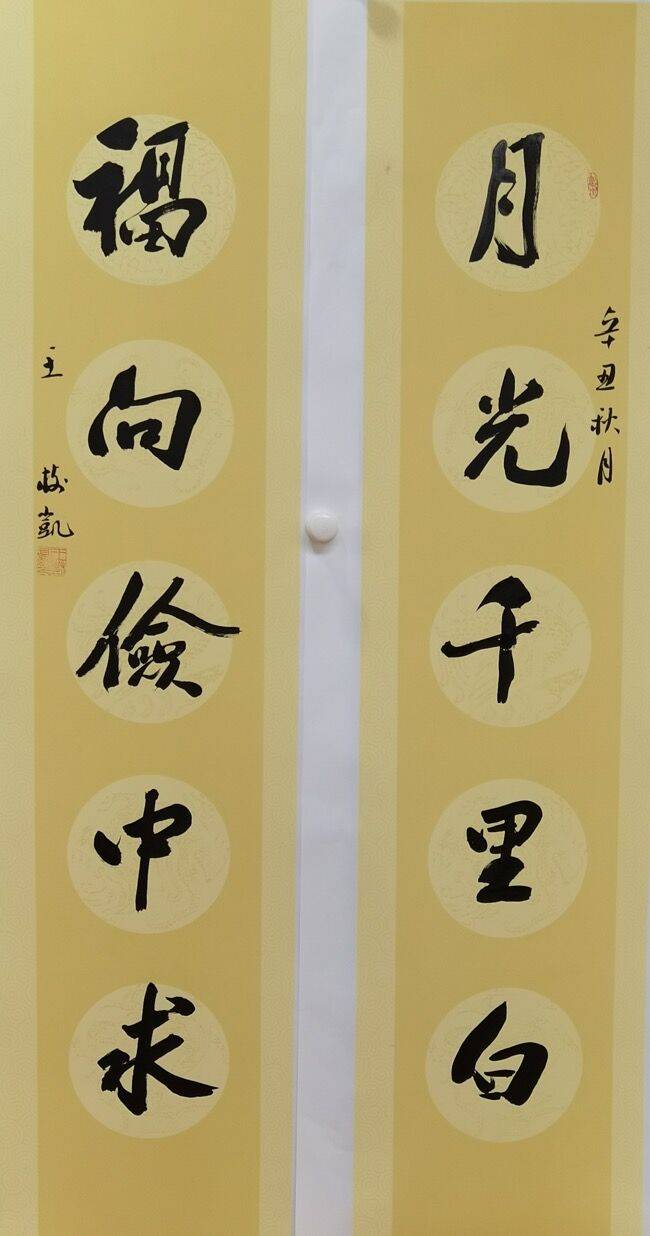 月光千里白
辛丑秋月
福向儉中求
王樹凱